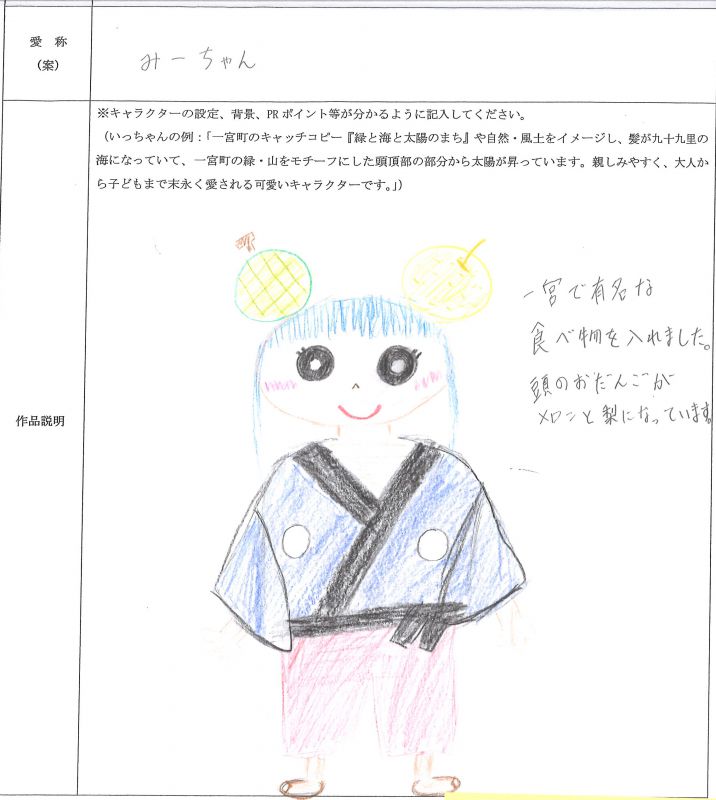 愛 称
(案)
みーちゃん
※キャラクターの設定、背景、PRポイント等が分かるように記入してください。
(いっちゃんの例:「一宮町のキャッチコピー『緑と海と太陽のまち』や自然・風土をイメージし、髪が九十九里の
海になっていて、一宮町の緑・山をモチーフにした頭頂部の部分から太陽が昇っています。親しみやすく、大人か
ら子どもまで末永く愛される可愛いキャラクターです。」)
一宮で有名な
食べ物を入れました。
頭のおだんごが
メロンと梨になっています。
作品説明